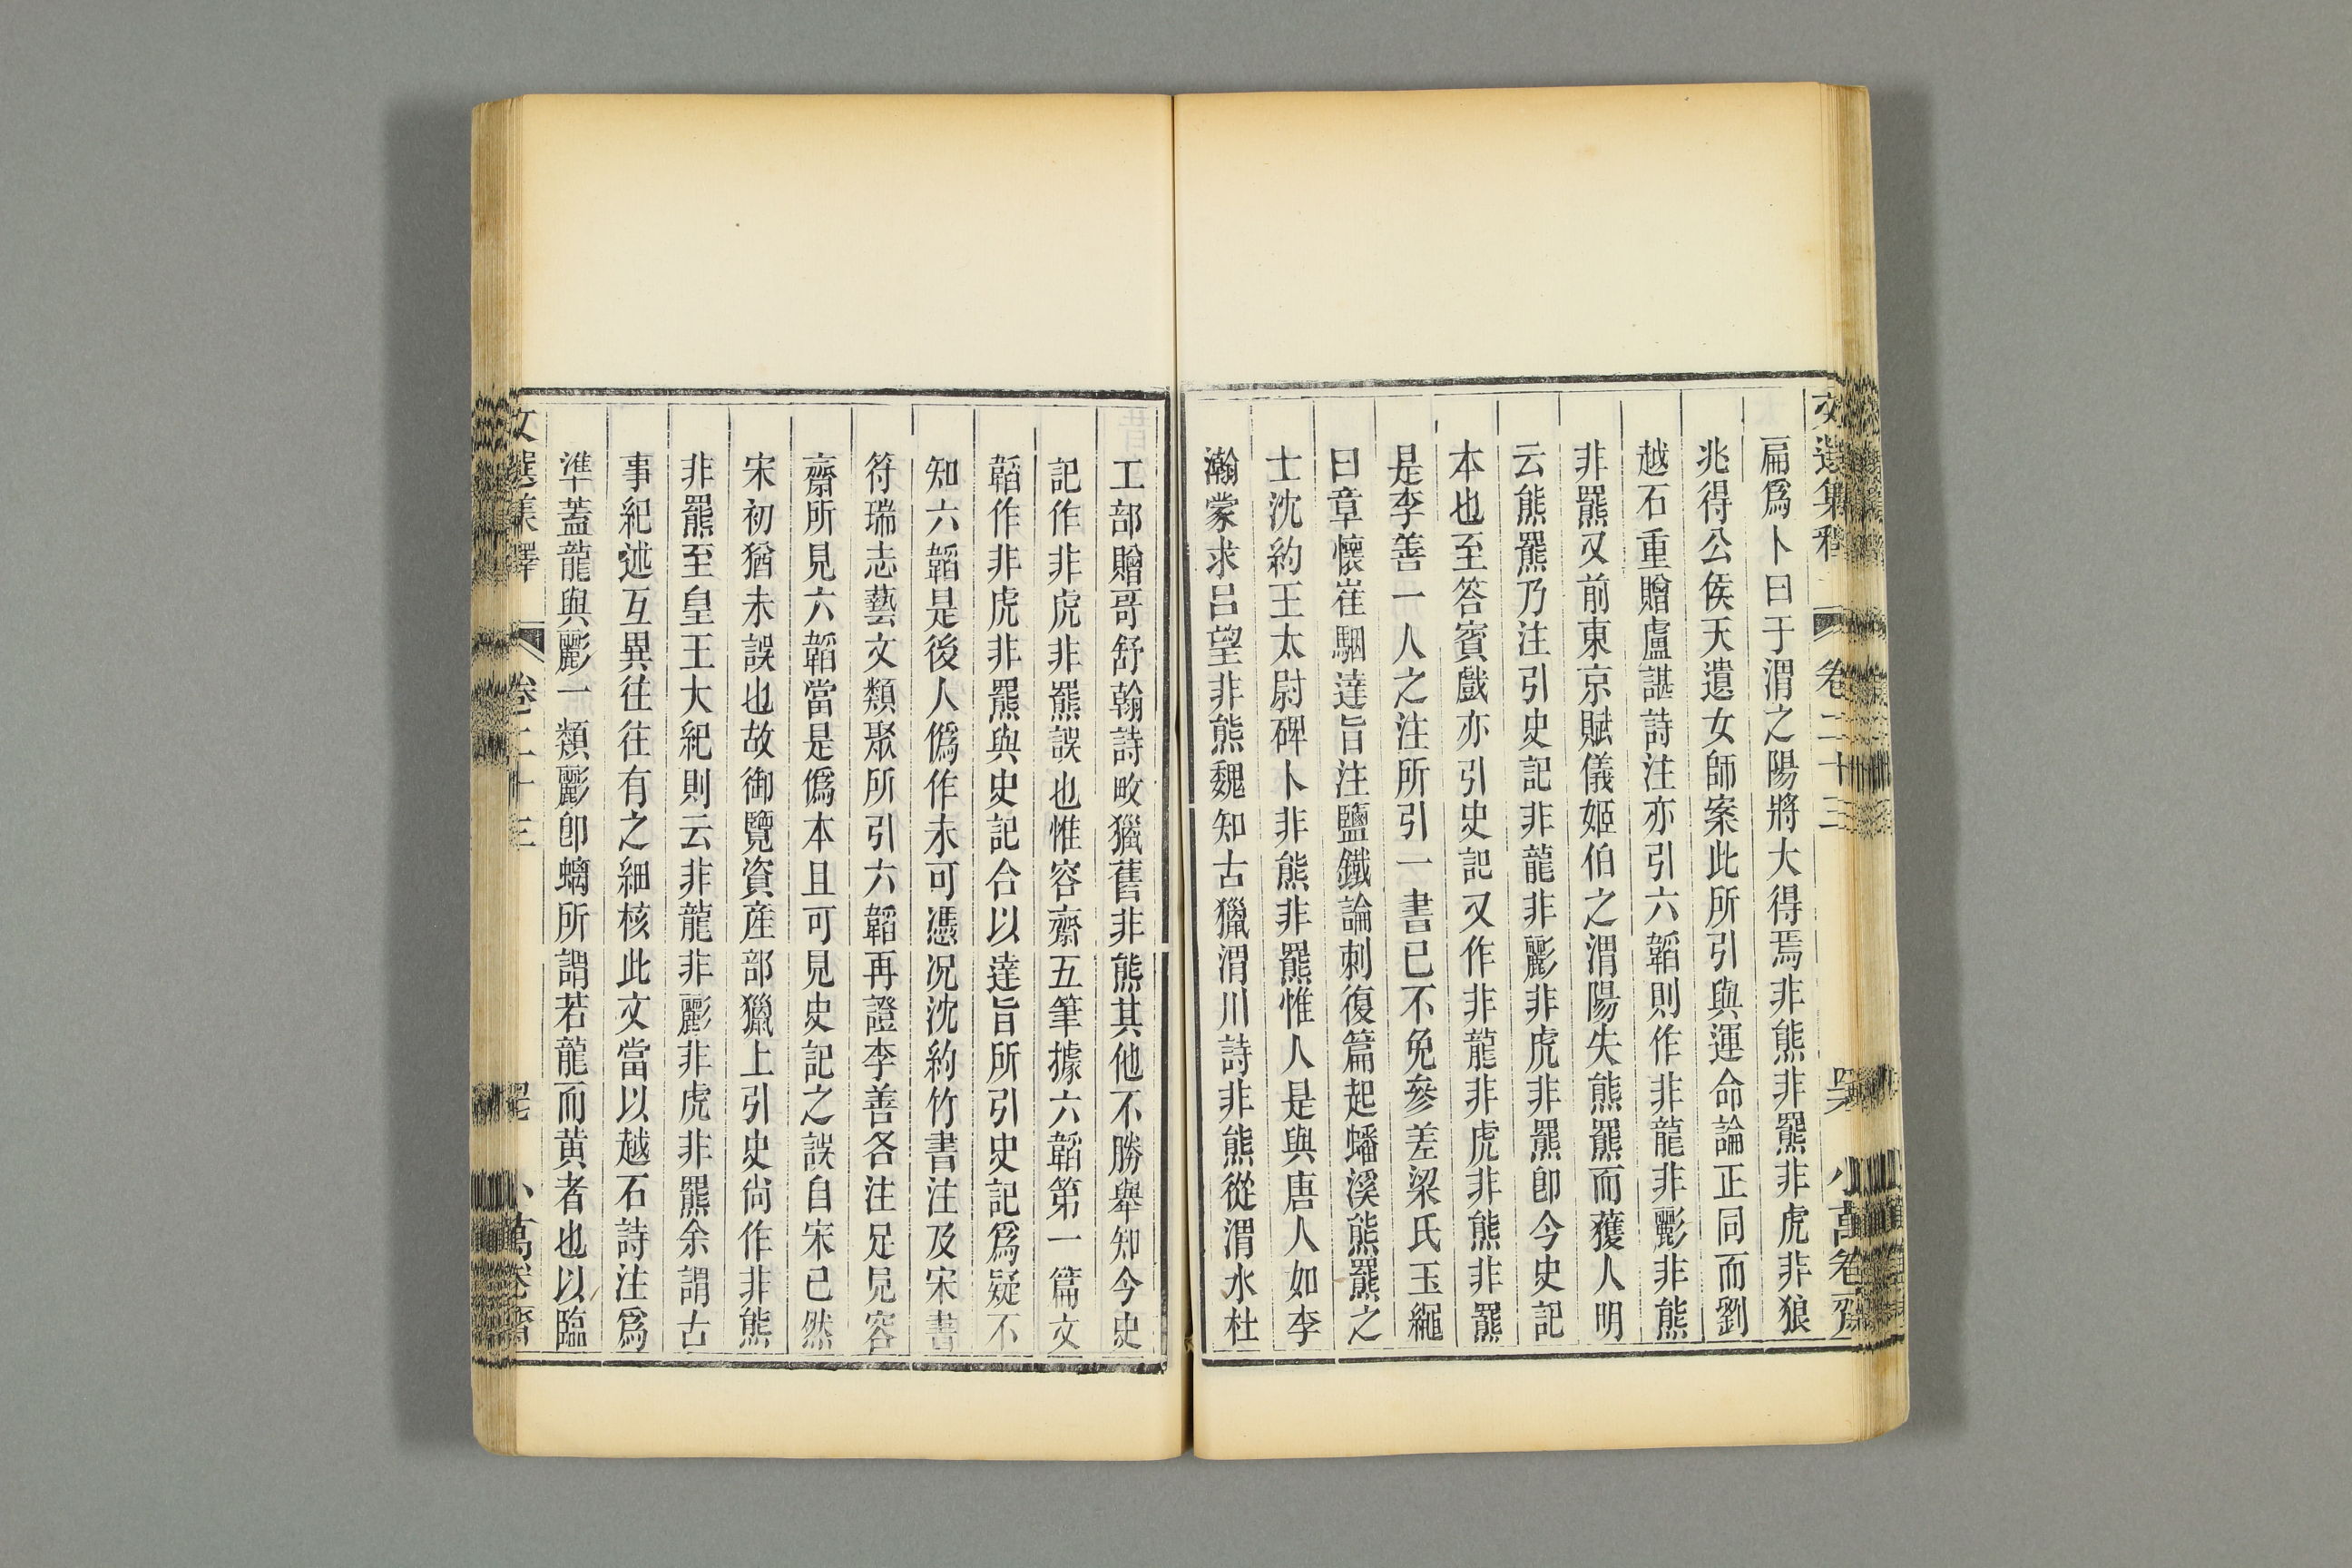 文選集釋 卷二十三 哭 小萬卷齋
扁爲卜曰于渭之陽將大得焉非熊非羆非虎非狼
兆得公侯天遺女師案此所引與運命論正同而劉
越石重贈盧諶詩注亦引六韜則作非龍非彲非熊
非羆又前東京賦儀姬伯之渭陽失熊羆而獲人明
云熊羆乃注引史記非龍非彲非虎非羆卽今史記
本也至答賓戲亦引史記又作非龍非虎非熊非羆
是李善一人之注所引一書已不免參差梁氏玉繩
曰章懷崔駰達旨注鹽鐵論刺復篇起蟠溪熊羆之
士沈約王太尉碑卜非熊非羆惟人是與唐人如李
瀚蒙求呂望非熊魏知古獵渭川詩非熊從渭水杜
工部贈哥舒翰詩畋獵舊非熊其他不勝舉知今史
記作非虎非羆誤也惟容齋五筆據六韜第一篇文
韜作非虎非羆與史記合以達旨所引史記爲疑不
知六韜是後人僞作未可憑況沈約竹書注及宋書
符瑞志藝文類聚所引六韜再證李善各注足見容
齋所見六韜當是僞本且可見史記之誤自宋已然
宋初猶未誤也故御覽資産部獵上引史尙作非熊
非羆至皇王大紀則云非龍非彲非虎非羆余謂古
事紀述互異往往有之細核此文當以越石詩注爲
準蓋龍與彲一類彲卽螭所謂若龍而黄者也以臨
文選集釋 卷二十三 小萬卷齋